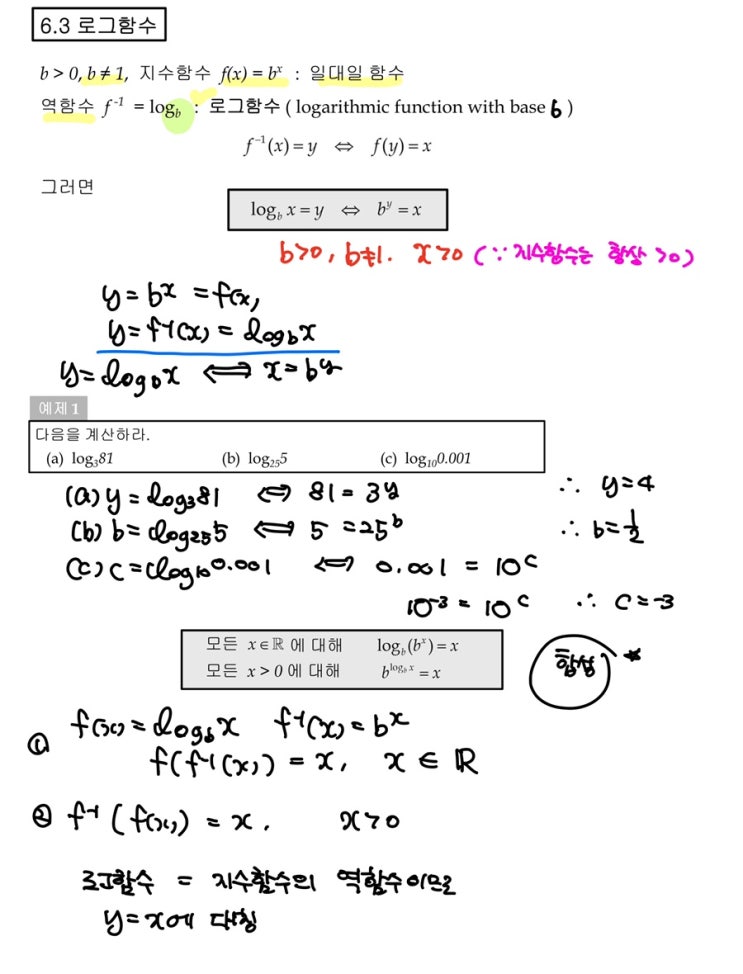 6.3 로그함수
b > 0, b ≠ 1, 지수함수 f(x) = bˣ : 일대일 함수
역함수 f⁻¹ = log_b : 로그함수 ( logarithmic function with base b )
f⁻¹(x) = y ⇔ f(y) = x
그러면
log_b x = y ⇔ bʸ = x
b>0, b≠1. x>0 (∵ 지수함수는 항상 >0)
y = bˣ = f(x),
y = f⁻¹(x) = log_b x
y = log_b x ⟺ x = bʸ
예제 1
다음을 계산하라.
(a) log₃81 (b) log₂₅5 (c) log₁₀0.001
(a) y = log₃81 ⇔ 81 = 3ʸ ∴ y = 4
(b) b = log₂₅5 ⟺ 5 = 25ᵇ ∴ b = 1/2
(c) c = log₁₀0.001 ⟺ 0.001 = 10ᶜ
10⁻³ = 10ᶜ ∴ c = -3
모든 x ∈ ℝ 에 대해 log_b(bˣ) = x
모든 x > 0 에 대해 b^(log_b x) = x
합성 ★
① f(x) = log_b x f⁻¹(x) = bˣ
f(f⁻¹(x)) = x, x ∈ ℝ
② f⁻¹(f(x)) = x. x > 0
로그함수 = 지수함수의 역함수이므로
y = x에 대칭